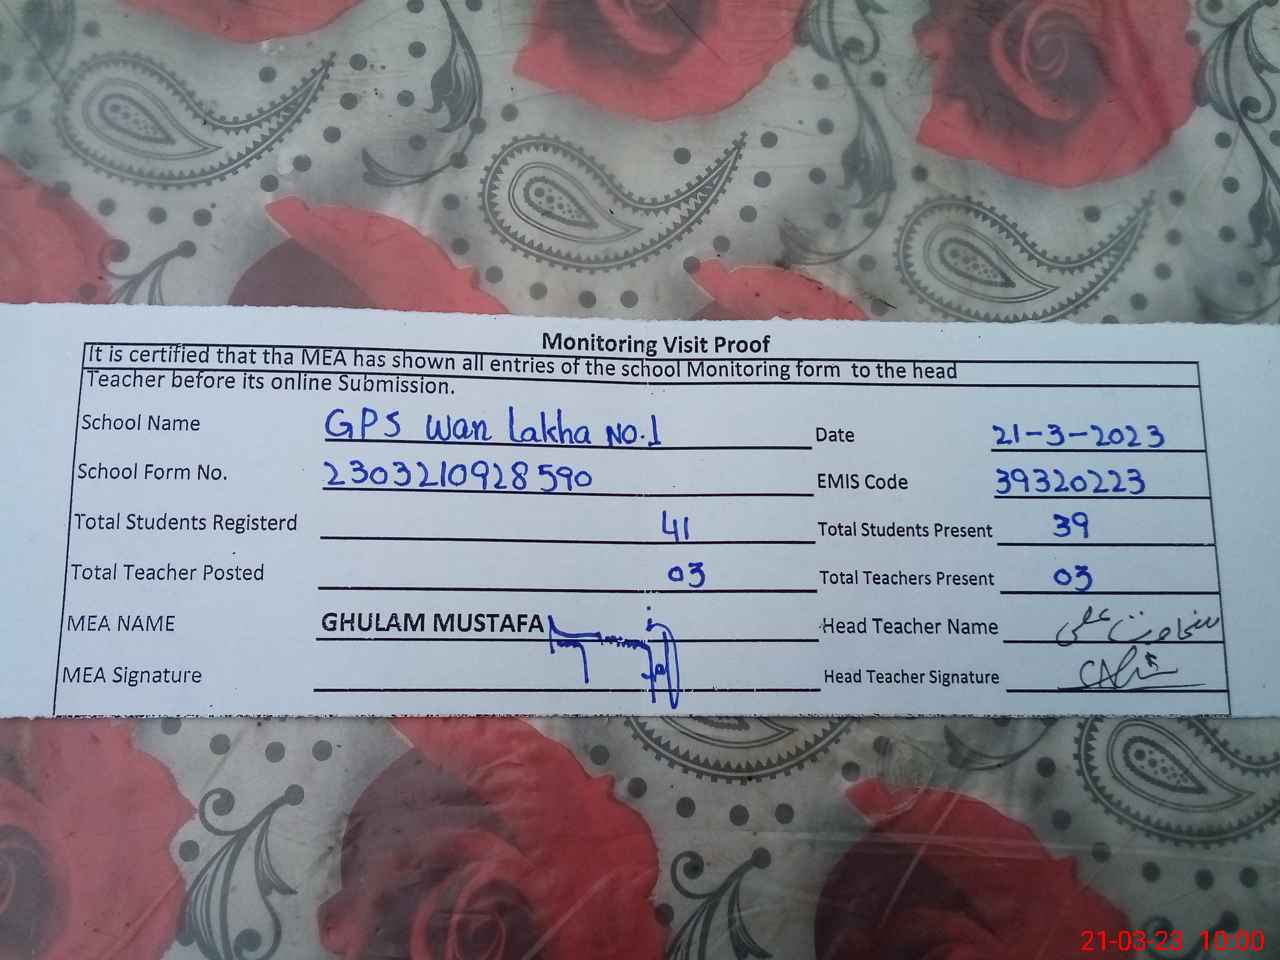 Monitoring Visit Proof
It is certified that tha MEA has shown all entries of the school Monitoring form to the head
Teacher before its online Submission.
School Name GPS Wan Lakha No.1 Date 21-3-2023
School Form No. 2303210928590 EMIS Code 39320223
Total Students Registerd 41 Total Students Present 39
Total Teacher Posted 03 Total Teachers Present 03
MEA NAME GHULAM MUSTAFA Head Teacher Name سخاوت علی
MEA Signature Head Teacher Signature
21-03-23 10:00